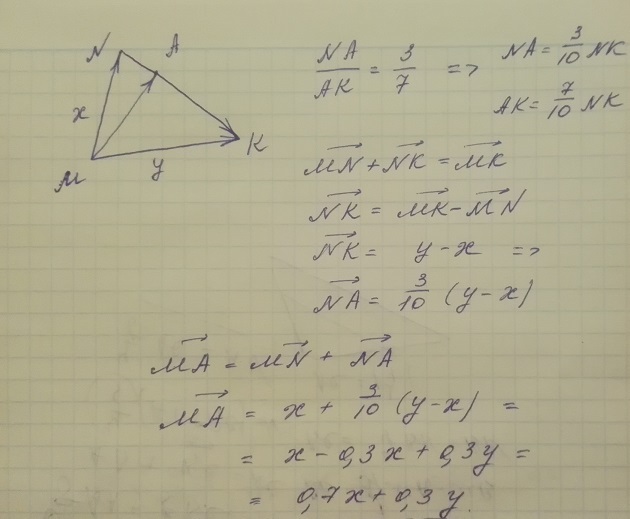 N A
x
y
M K
NA/AK = 3/7 => NA = 3/10 NK
AK = 7/10 NK
MN + NK = MK
NK = MK - MN
NK = y - x =>
NA = 3/10 (y - x)
MA = MN + NA
MA = x + 3/10 (y - x) =
= x - 0,3x + 0,3y =
= 0,7x + 0,3y